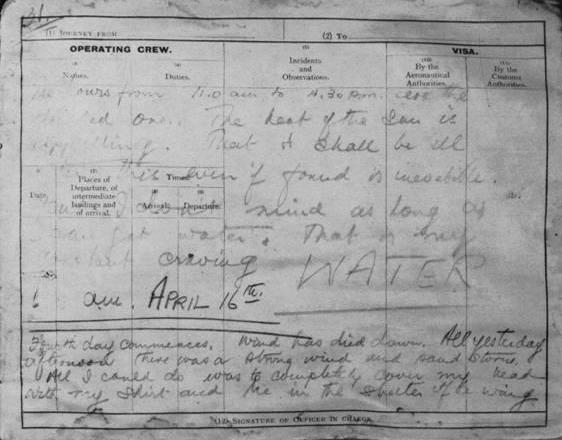 31.
(1) JOURNEY FROM (2) TO
OPERATING CREW. VISA.
Incidents and Observations.
Names. Duties. By the Aeronautical Authorities. By the Customs Authorities.
hours from 11.0 am to 4.30 P.m. are the
one. The heat of the Sun is
appalling. That I shall be ill
this even if found is inevitable.
Date. Places of Departure, of intermediate landings and of arrival. Times Arrival. Departure.
mind as long as
I can get water. That is my
constant craving WATER
am. APRIL 16th.
Fourth day commences. Wind has died down. All yesterday
afternoon there was a strong wind and sand storm.
All I could do was to completely cover my head
with my shirt and lie in the shelter of the wing
(12) SIGNATURE OF OFFICER IN CHARGE